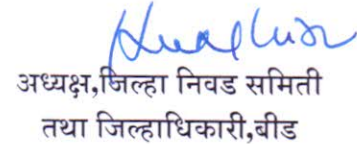 अध्यक्ष,जिल्हा निवड समिती
तथा जिल्हाधिकारी,बीड